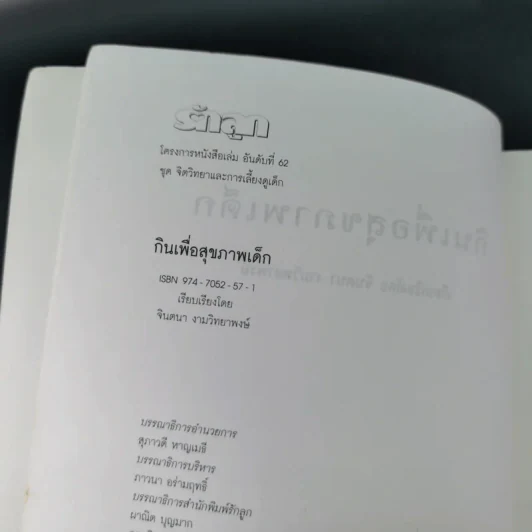 รักลูก
โครงการหนังสือเล่ม อันดับที่ 62
ชุด จิตวิทยาและการเลี้ยงดูเด็ก
กินเพื่อสุขภาพเด็ก
ISBN 974-7052-57-1
เรียบเรียงโดย
จินตนา งามวิทยาพงษ์
บรรณาธิการอำนวยการ
สุภาวดี หาญเมธี
บรรณาธิการบริหาร
ภาวนา อร่ามฤทธิ์
บรรณาธิการสำนักพิมพ์รักลูก
ผาณิต บุญมาก